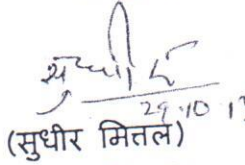 सुधीर
29.10.1
(सुधीर मित्तल)